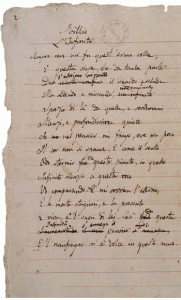 Idillio
L'Infinito
Sempre caro mi fu quest'ermo colle
E questa siepe che da tanta parte
il guardo esclude
Ma sedendo e mirando
Spazio di là da quella, e sovrumani
Silenzi, e profondissima quiete
Io nel pensier mi fingo, ove per poco
Il cor non si spaura. E come il vento
Odo stormir fra queste piante, io quello
Infinito silenzio a questa voce
Vo comparando: e mi sovvien l'eterno,
E le morte stagioni, e la presente
E viva, e 'l suon di lei. Così fra questa
E 'l naufragar m'è dolce in questo mare.